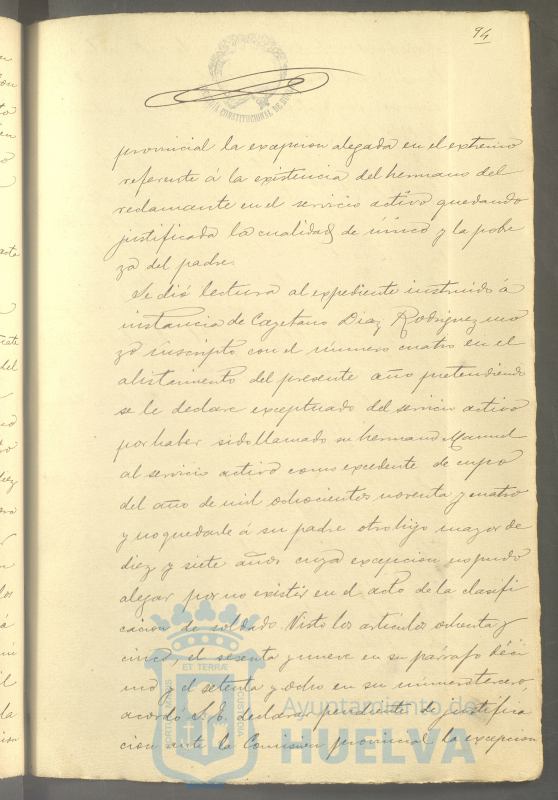 94
CONSTITUCIONAL DE
provincial la excepcion alegada en el extremo
referente á la existencia del hermano del
reclamante en el servicio activo quedando
justificada la cualidad de único y la pobe
za del padre.
Se dió lectura al expediente instruido á
instancia de Cayetano Diaz Rodriguez mo
zo inscripto con el número cuatro en el
alistamiento del presente año pretendiendo
se le declare exceptuado del servicio activo
por haber sido llamado su hermano Manuel
al servicio activo como excedente de cupo
del año de mil ochocientos noventa y cuatro
y no quedarle á su padre otro hijo mayor de
diez y siete años cuya excepcion no pudo
alegar por no existir en el acto de la clasifi
cacion de soldado. Visto los artículos ochenta y
cinco, el sesenta y nueve en su párrafo déci
mo y el setenta y ocho en su número tercero,
acordó S. E. declarar pendiente de justifica
cion ante la Comision provincial la excepcion
ET TERRÆ
PORTUS MARIS
CUSTODIA
Ayuntamiento de
HUELVA